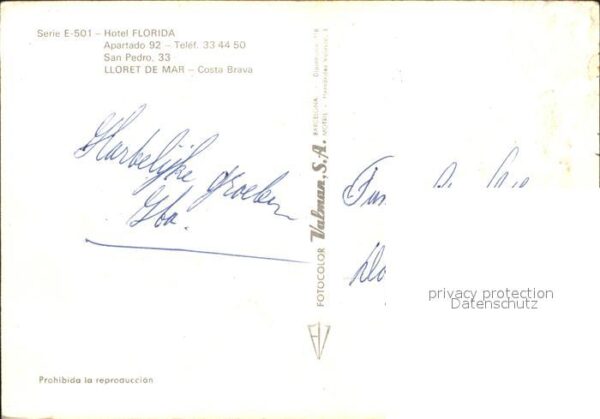 Serie E-501 – Hotel FLORIDA
Apartado 92 – Teléf. 33 44 50
San Pedro, 33
LLORET DE MAR – Costa Brava
Hartelijke groeten
FOTOCOLOR Valman, S.A. BARCELONA
privacy protection
Datenschutz
Prohibida la reproducción